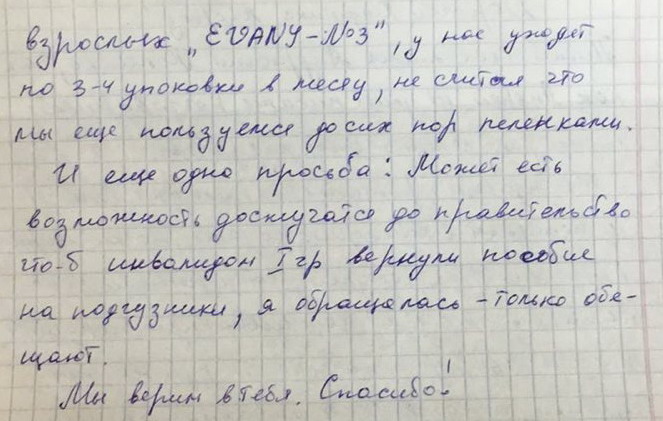 взрослых „EVANY-№3", у нас уходят
по 3-4 упоковки в месяц, не считая что
мы еще пользуемся до сих пор пеленками.
И еще одна просьба: Может есть
возможность достучатся до правительство
что-б инвалидам I гр вернули пособие
на подгузники, я обращалась - только обе-
щают.
Мы верим в тебя. Спасибо!